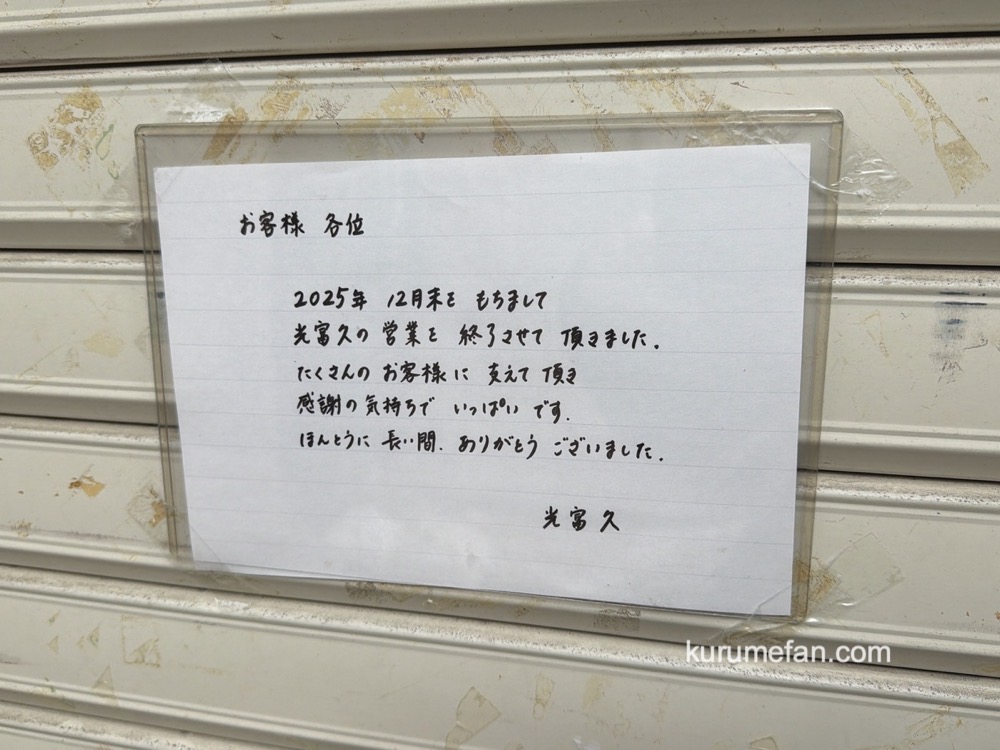 お客様 各位
2025年 12月末を もちまして
光富久の営業を 終了させて 頂きました。
たくさんの お客様に 支えて 頂き
感謝の気持ちで いっぱい です。
ほんとうに 長い間、ありがとう ございました。
光富久
kurumefan.com